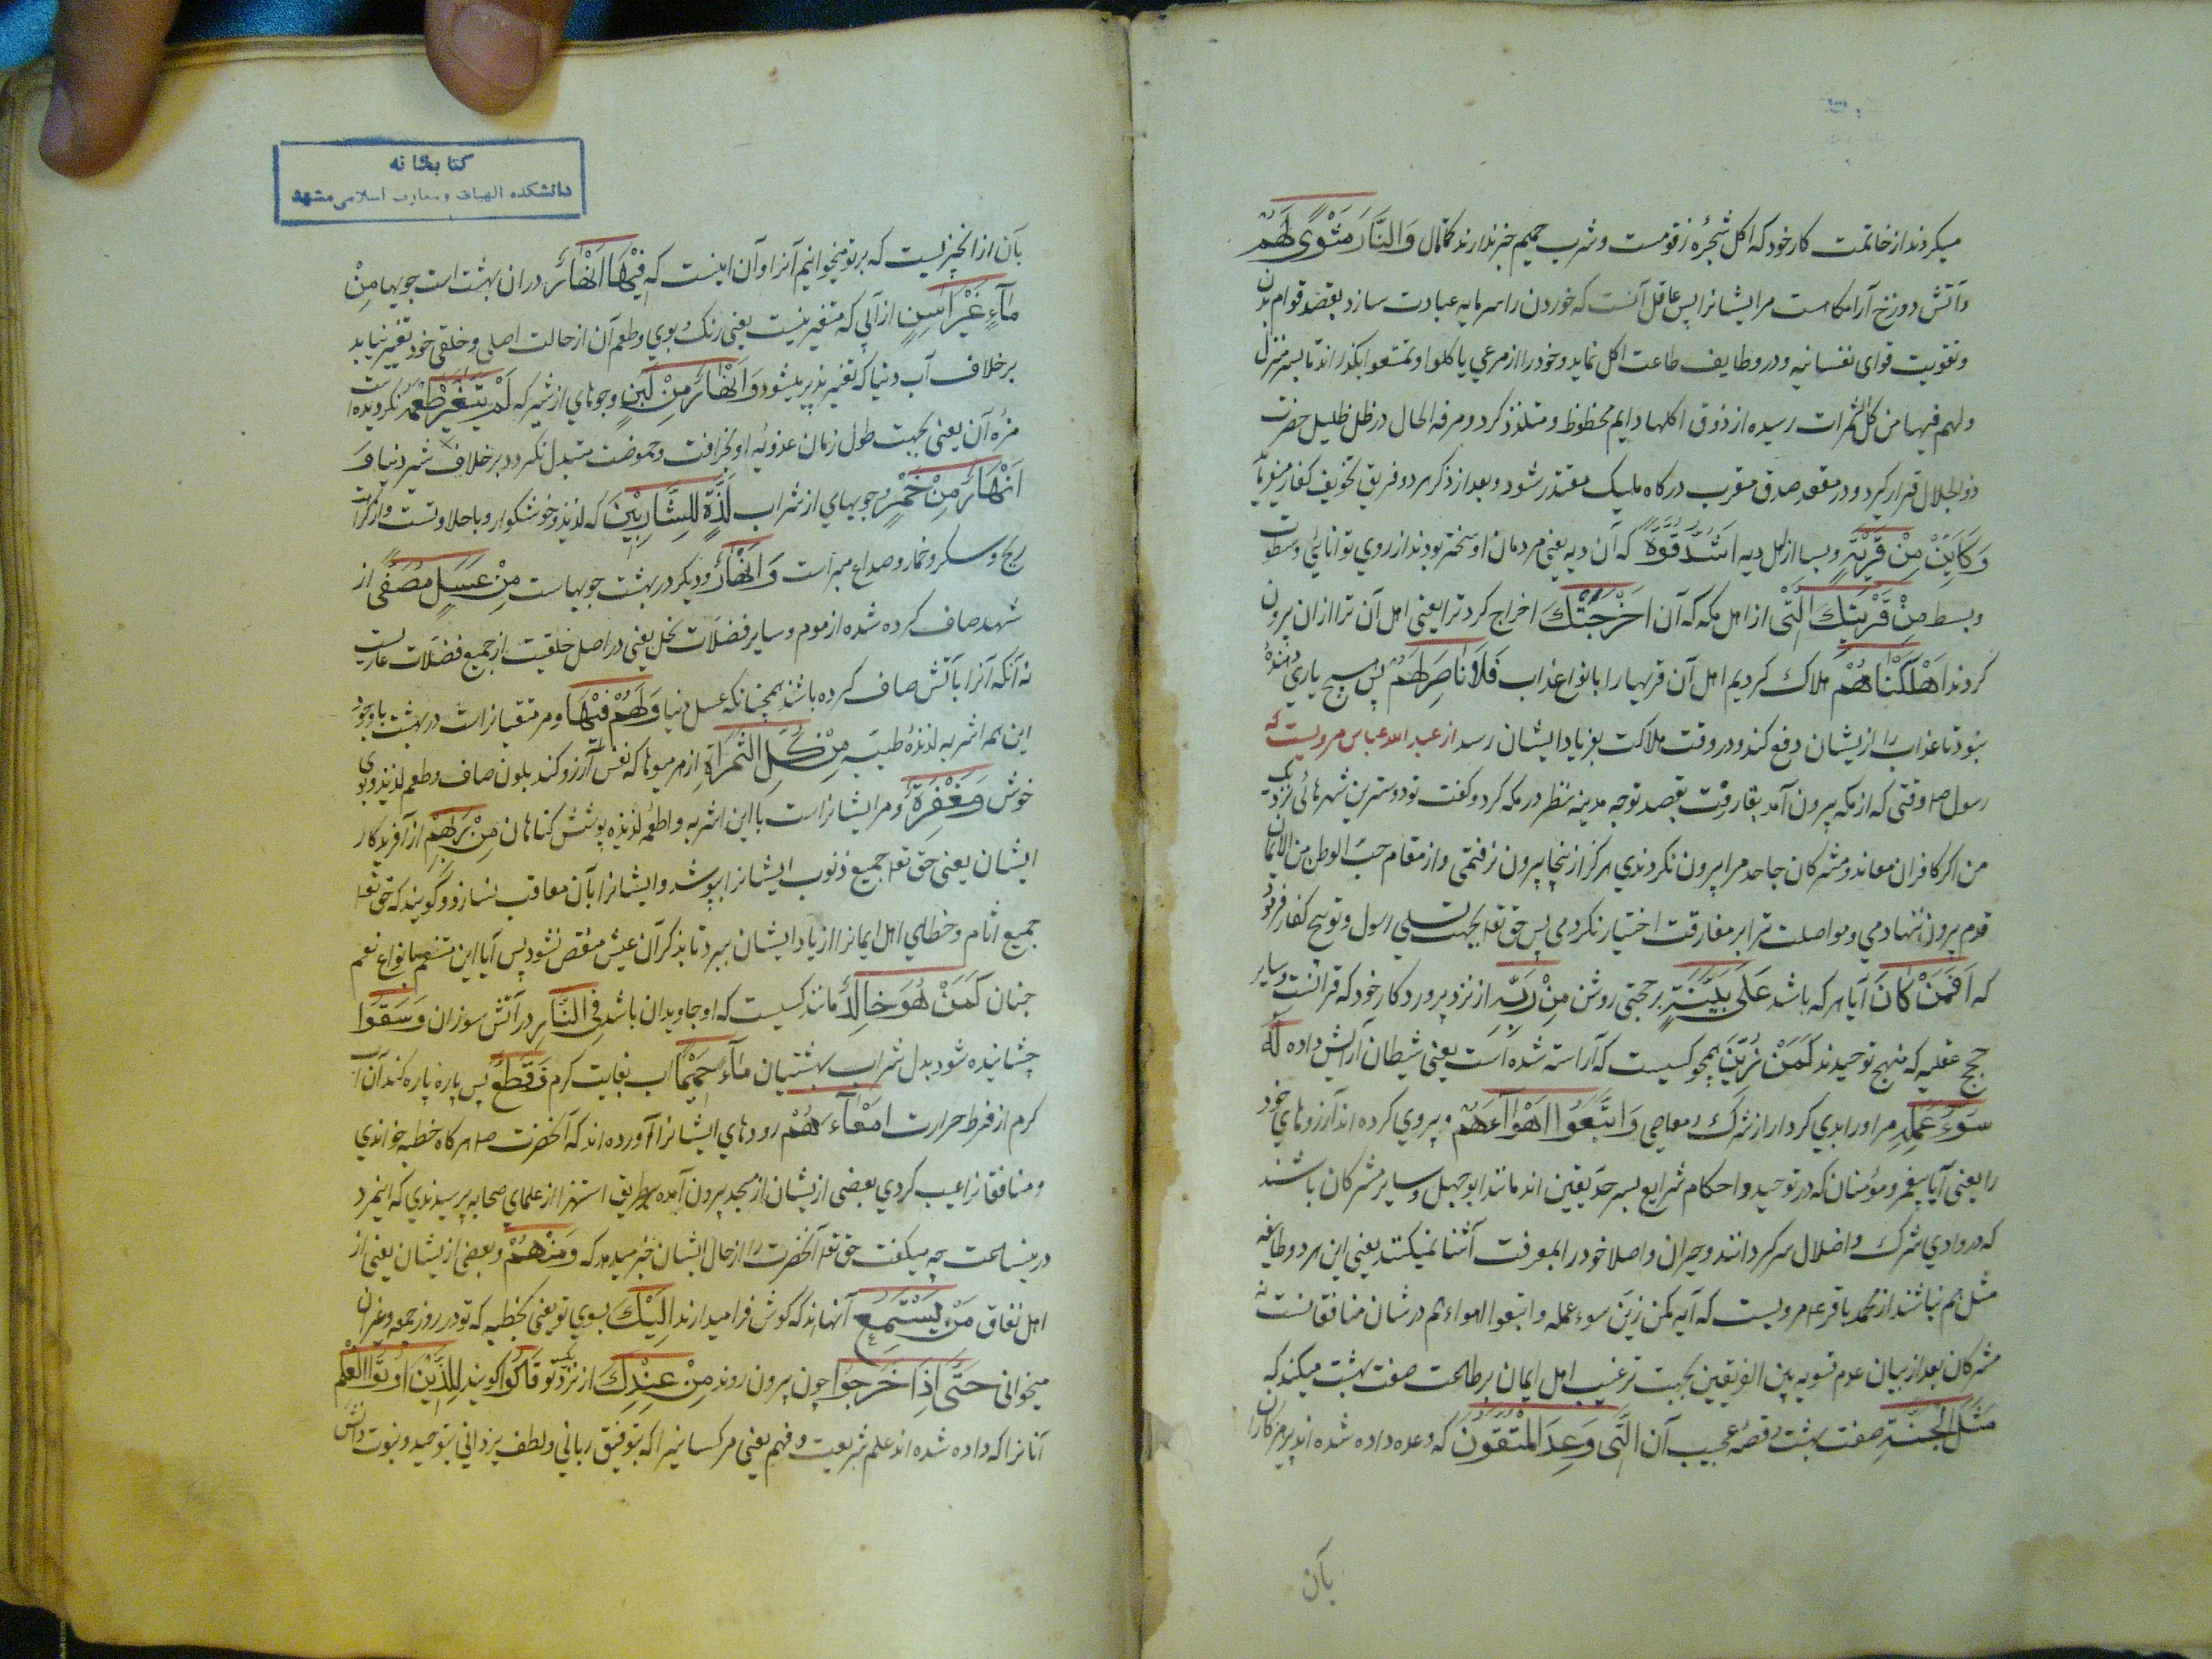 میکردند از خاتمت کار خود که اکل شجره زقومست و شرب حمیم خبر ندارند کما قال وَالنَّارُ مَثْوًى لَهُمْ
و آتش دوزخ آرامکاهست مر ایشانرا پس عاقل آنست که خوردن را سرمایه عبادت سازد بقصد قوام بدن
و تقویت قوای نفسانیه و در وظایف طاعت اکل نماید و خود را از مرعی یاکلوا و تمتعوا بکذراند تا بسر منزل
ولهم فیها من کل الثمرات رسیده از ذوق اکلها دایم محظوظ و متلذذ کردد و مرفه الحال در ظل ظلیل حضرت
ذو الجلال قرار کیرد و در مقعد صدق مقرب درکاه ملیک مقتدر شود و بعد از ذکر هر دو فریق تخویف کفار میفرماید
وَكَأَيِّنْ مِنْ قَرْيَةٍ و بسا از اهل دیه أَشَدُّ قُوَّةً که آن دیه یعنی مردمان او سختر بودند از روی توانائی و سطوت
و بسط مِنْ قَرْيَتِكَ الَّتِي از اهل مکه که آن أَخْرَجَتْكَ اخراج کرد ترا یعنی اهل آن ترا ازان بیرون
کردند أَهْلَكْنَاهُمْ هلاک کردیم اهل آن قریها را بانواع عذاب فَلَا نَاصِرَ لَهُمْ پس هیچ یاری دهندهٔ
نبود تا عذاب را از یشان دفع کند و در وقت هلاکت بفریاد ایشان رسد از عبد الله عباس مرویست که
رسول ص وقتی که از مکه بیرون آمد بقصد توجه مدینه نظر در مکه کرد و کفت تو دوستترین شهرهائی نزدیک
من اکر کافران معاند و مشرکان جاحد مرا بیرون نکردندی هرکز از ینجا بیرون نرفتمی و از مقام حب الوطن من الایمان
قدم بیرون ننهادمی و مواصلت ترا بر مفارقت اختیار نکردمی پس حق تعه بجهت تسلی رسول و توبیخ کفار فرمود
که أَفَمَنْ كَانَ آیا هر که باشد عَلَى بَيِّنَةٍ بر حجتی روشن مِنْ رَبِّهِ از نزد پروردکار خود که قرانست و سایر
حجج عقلیه که منهج توحیدند كَمَنْ زُيِّنَ همچو کسیست که آراسته شده است یعنی شیطان آرایش داده لَهُ
سُوءُ عَمَلِهِ مر او را بدی کردار از شرک و معاصی وَاتَّبَعُوا أَهْوَاءَهُمْ و پیروی کرده اند آرزوهای خود
را یعنی آیا پیغمبر و مؤمنان که در توحید و احکام شرایع بسر حد یقین اند مانند ابو جهل و سایر مشرکان باشند
که در وادی شرک و اضلال سرکردانند و حیران و اصلا خود را بمعرفت آشنا نمیکنند یعنی این هر دو طایفه
مثل هم نباشند از محمد باقر ع مرویست که آیه کمن زین سوء عمله و اتبعوا اهواءهم در شان منافقانست نه
مشرکان بعد از بیان عدم تسویه بین الفریقین بجهت ترغیب اهل ایمان بر طاعت صفت بهشت میکند که
مَثَلُ الْجَنَّةِ صفت بهشت و قصه عجیب آن الَّتِي وُعِدَ الْمُتَّقُونَ که وعده داده شده اند پرهیزکاران
بآن
کتابخانه
دانشکده الهیات و معارف اسلامی مشهد
بآن از انچیزیست که بر تو میخوانیم آنرا و آن اینست که فِيهَا أَنْهَارٌ در ان بهشت است جویها مِنْ
مَاءٍ غَيْرِ آسِنٍ از آبی که متغیر نیست یعنی رنک و بوی و طعم آن از حالت اصلی و خلقی خود تغییر نیابد
بر خلاف آب دنیا که تغیر پذیر میشود وَأَنْهَارٌ مِنْ لَبَنٍ و جوهای از شیر که لَمْ يَتَغَيَّرْ طَعْمُهُ نکردیده است
مزه آن یعنی بجهت طول زمان عذوبه او بحرافت و حموضت متبدل نکردد بر خلاف شیر دنیا وَ
أَنْهَارٌ مِنْ خَمْرٍ و جویهای از شراب لَذَّةٍ لِلشَّارِبِينَ که لذیذ و خوشکوار و با حلاوتست و از کراهت
ریح و سکر و خمار و صداع مبراست وَأَنْهَارٌ و دیکر در بهشت جویهاست مِنْ عَسَلٍ مُصَفًّى از
شهد صاف کرده شده از موم و سایر فضلات نحل یعنی در اصل خلقت از جمیع فضلات عاریست
نه آنکه آنرا بآتش صاف کرده باشند همچنانکه عسل دنیا وَلَهُمْ فِيهَا و مر متقیانراست در بهشت با وجود
این همه اشربه لذیذهٔ طیبه مِنْ كُلِّ الثَّمَرَاتِ از هر میوها که نفس آرزو کند بلون صاف و طعم لذیذ و بوی
خوش وَمَغْفِرَةٌ و مر ایشانراست با این اشربه و اطعمه لذیذه پوشش کناهان مِنْ رَبِّهِمْ از آفریدکار
ایشان یعنی حق تعه جمیع ذنوب ایشانرا بپوشد و ایشانرا بآن معاقب نسازد و کویند که حق تعه
جمیع آثام و خطای اهل ایمانرا از یاد ایشان ببرد تا بذکر آن عیش منغص نشود پس آیا این متنعم بانواع نعم
جنان كَمَنْ هُوَ خَالِدٌ مانند کسیست که او جاویدان باشد فِي النَّارِ در آتش سوزان وَسُقُوا
چشانیده شود بدل شراب بهشتیان مَاءً حَمِيمًا اب بغایت کرم فَقَطَّعَ پس پاره پاره کند آن آب
کرم از فرط حرارت أَمْعَاءَهُمْ رودهای ایشانرا آورده اند که آنحضرت ص هرکاه خطبه خواندی
و منافقانرا عیب کردی بعضی از یشان از مسجد بیرون آمده بطریق استهزا از علمای صحابه پرسیدندی که اینمرد
درینساعت چه میکفت حق تعه آنحضرت را از حال ایشان خبر میدهد که وَمِنْهُمْ و بعض از یشان یعنی از
اهل نفاق مَنْ يَسْتَمِعُ آنهااند که کوش فرا میدارند إِلَيْكَ بسوی تو یعنی بخطبه که تو در روز جمعه و غیران
میخوانی حَتَّى إِذَا خَرَجُوا چون بیرون روند مِنْ عِنْدِكَ از نزد تو قَالُوا کویند لِلَّذِينَ أُوتُوا الْعِلْمَ
آنانرا که داده شده اند علم شریعت و فهم یعنی مر کسانیرا که بتوفیق ربانی و لطف یزدانی بتوحید و نبوت دانش